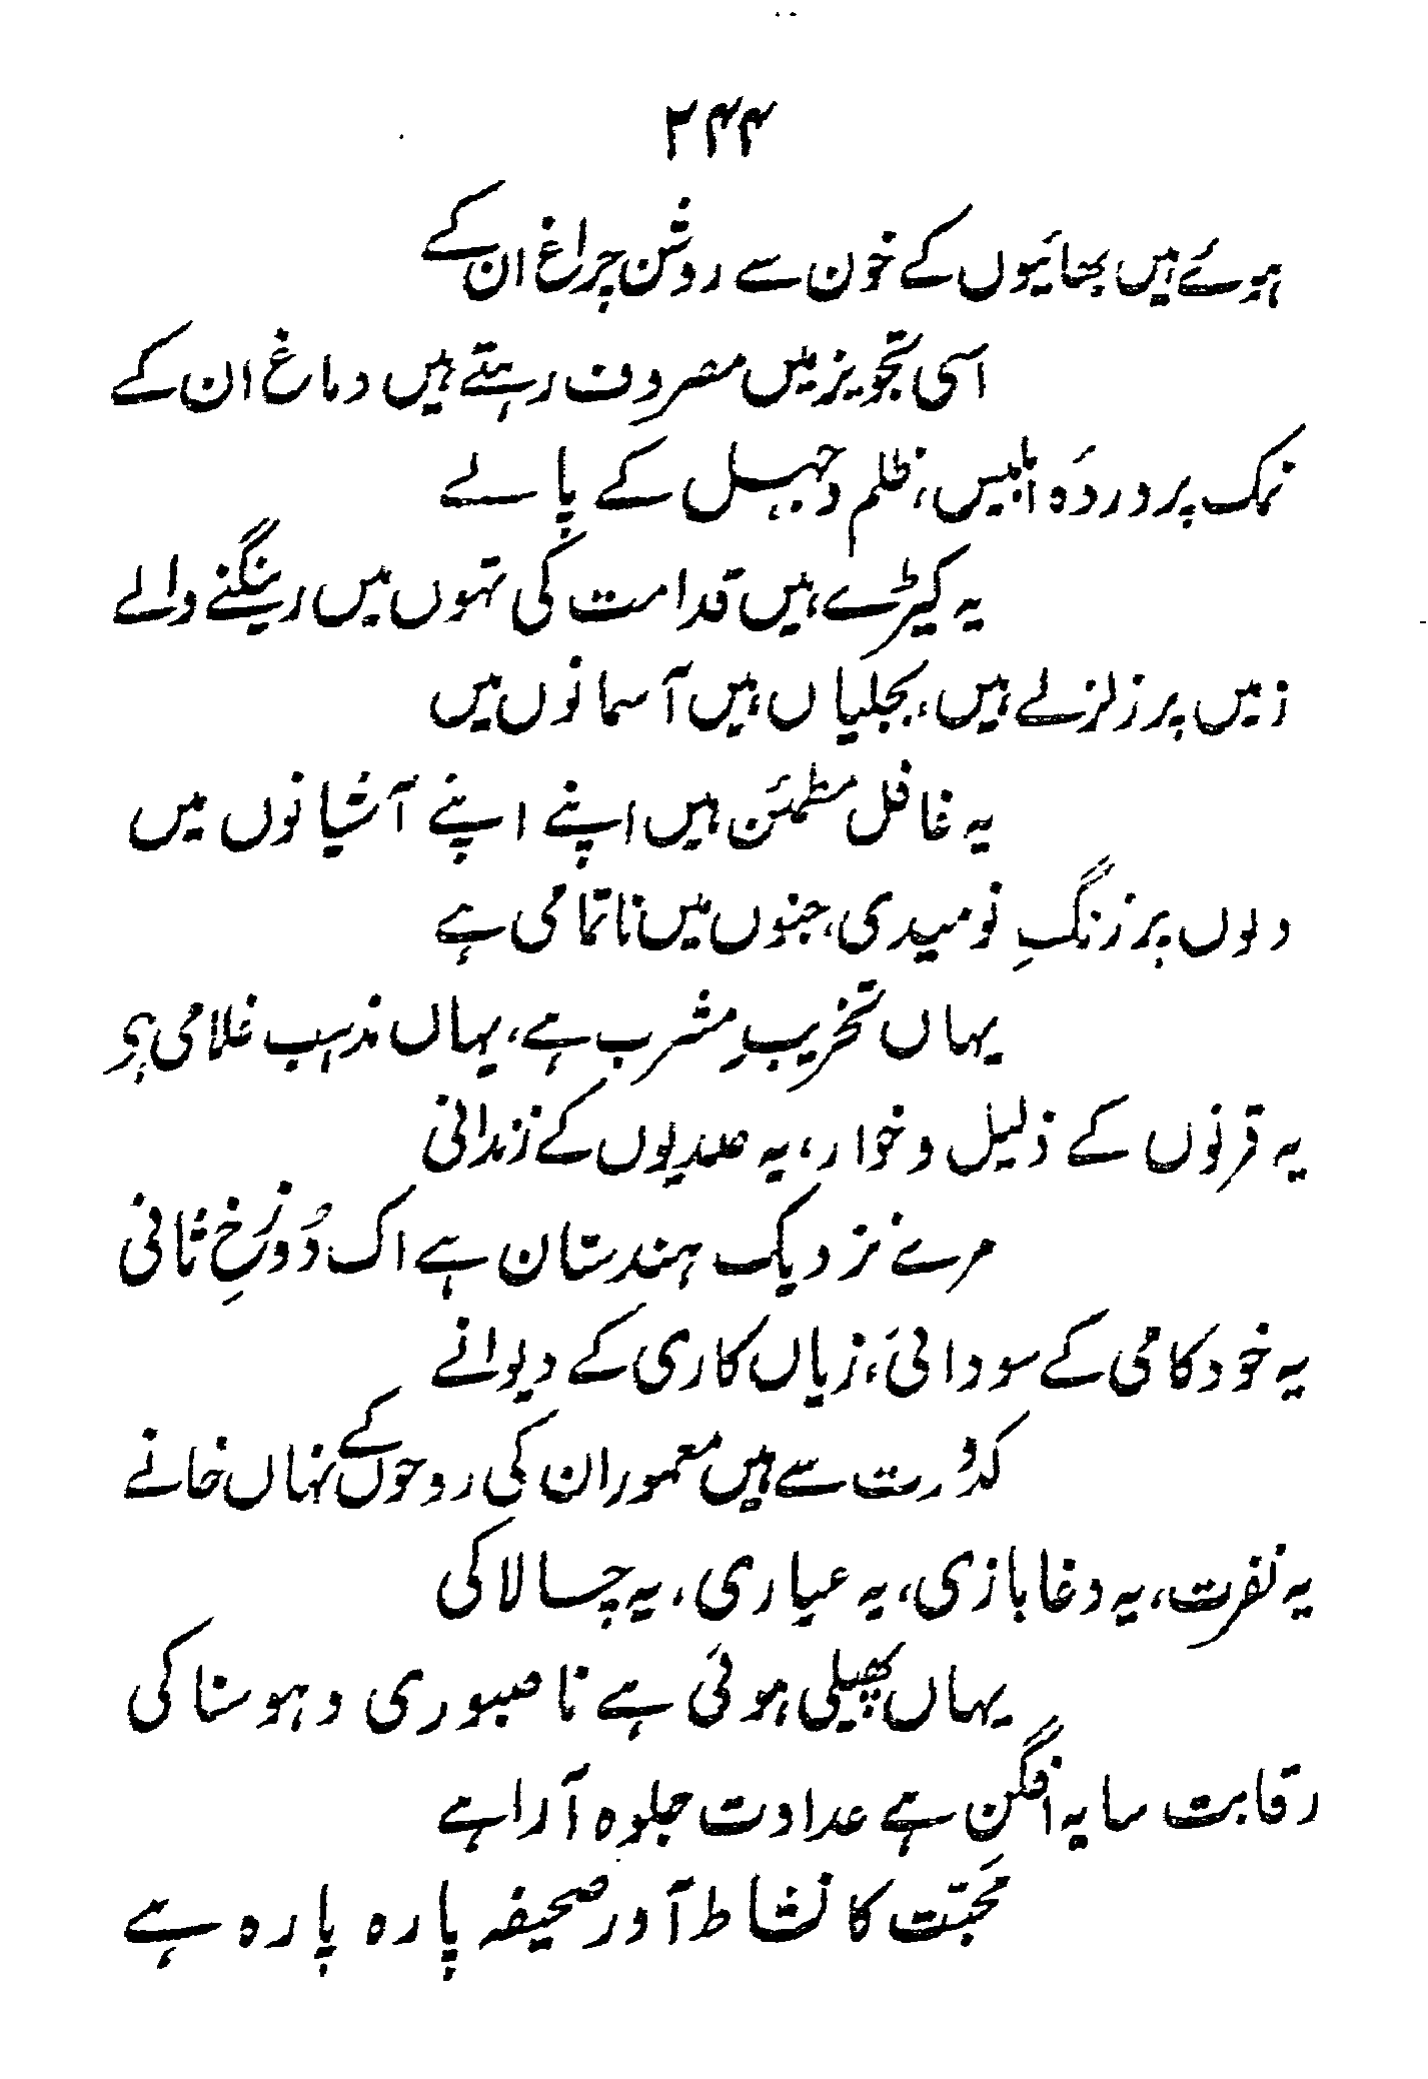 ۲۴۴
ہوئے ہیں بھائیوں کے خون سے روشن چراغ ان کے
اسی تجویز میں مصروف رہتے ہیں دماغ ان کے
نمک پروردۂ ابلیس، ظلم و جہل کے پالے
یہ کیڑے ہیں قدامت کی تہوں میں رینگنے والے
زمیں پر زلزلے ہیں، بجلیاں ہیں آسمانوں میں
یہ غافل مطمئن ہیں اپنے اپنے آشیانوں میں
دلوں پر زنگِ نومیدی، جنوں میں ناتمامی ہے
یہاں تخریبِ مشرب ہے، یہاں مذہب غلامی ہے
یہ قرنوں کے ذلیل و خوار، یہ صدیوں کے زندانی
مرے نزدیک ہندستان ہے اک دُوزخِ ثانی
یہ خودکامی کے سودائی، زیاں کاری کے دیوانے
کدُورت سے ہیں معمور ان کی روحوں کے نہاں خانے
یہ نفرت، یہ دغا بازی، یہ عیاری، یہ چالاکی
یہاں پھیلی ہوئی ہے ناصبوری و ہوسناکی
رقابت سایہ افگن ہے عداوت جلوہ آرا ہے
مَحبّت کا نشاط آور صحیفہ پارہ پارہ ہے